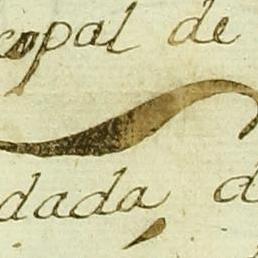 copal de
dada d